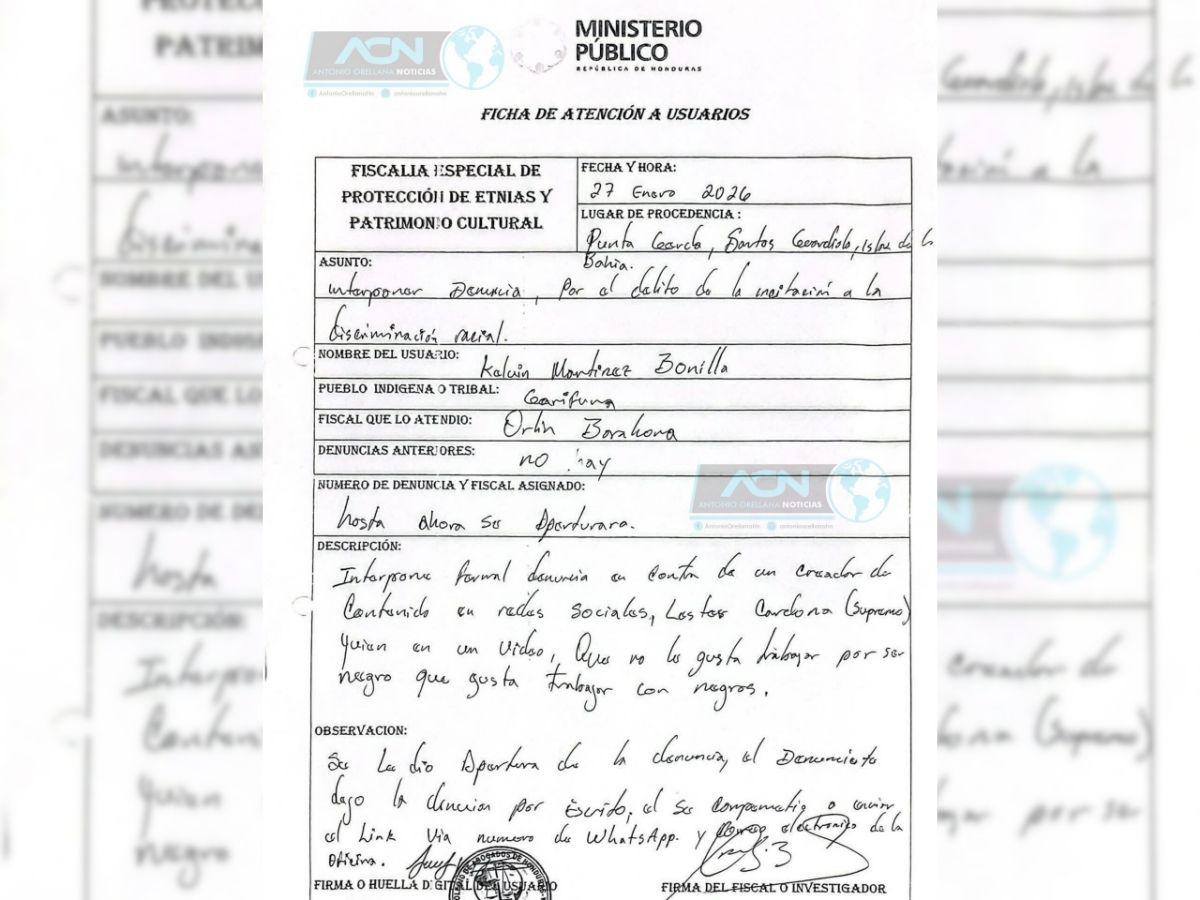 ACN
ANTONIO ORELLANA NOTICIAS
AntonioOrellanaHn
antonioorellanahn
MINISTERIO
PÚBLICO
REPÚBLICA DE HONDURAS
FICHA DE ATENCIÓN A USUARIOS
FISCALIA ESPECIAL DE
PROTECCIÓN DE ETNIAS Y
PATRIMONIO CULTURAL
FECHA Y HORA:
27 Enero 2026
LUGAR DE PROCEDENCIA:
Punta Gorda, Santos Guardiola, Islas de la
Bahia.
ASUNTO:
interponer Denuncia, Por el delito de la incitación a la
discriminación racial.
NOMBRE DEL USUARIO:
Kelvin Martinez Bonilla
PUEBLO INDIGENA O TRIBAL:
Garifuna
FISCAL QUE LO ATENDIO:
Orlin Barahona
DENUNCIAS ANTERIORES:
no hay
NUMERO DE DENUNCIA Y FISCAL ASIGNADO:
hasta ahora se Aperturara.
ACN
ANTONIO ORELLANA NOTICIAS
AntonioOrellanaHn
antonioorellanahn
DESCRIPCIÓN:
Interpone formal denuncia en contra de un creador de
Contenido en redes sociales, Lester Cardona (Supremo)
quien en un video, Que no le gusta trabajar por ser
negro que gusta trabajar con negros.
OBSERVACION:
Se Le dio Apertura de la denuncia, el Denunciante
dejo la denuncia por Escrito, el se a enviar
el Link via numero de WhatsApp. y correo electronico de la
oficina.
COLEGIO DE ABOGADOS DE HONDURAS
FIRMA O HUELLA DIGITAL DEL USUARIO
FIRMA DEL FISCAL O INVESTIGADOR